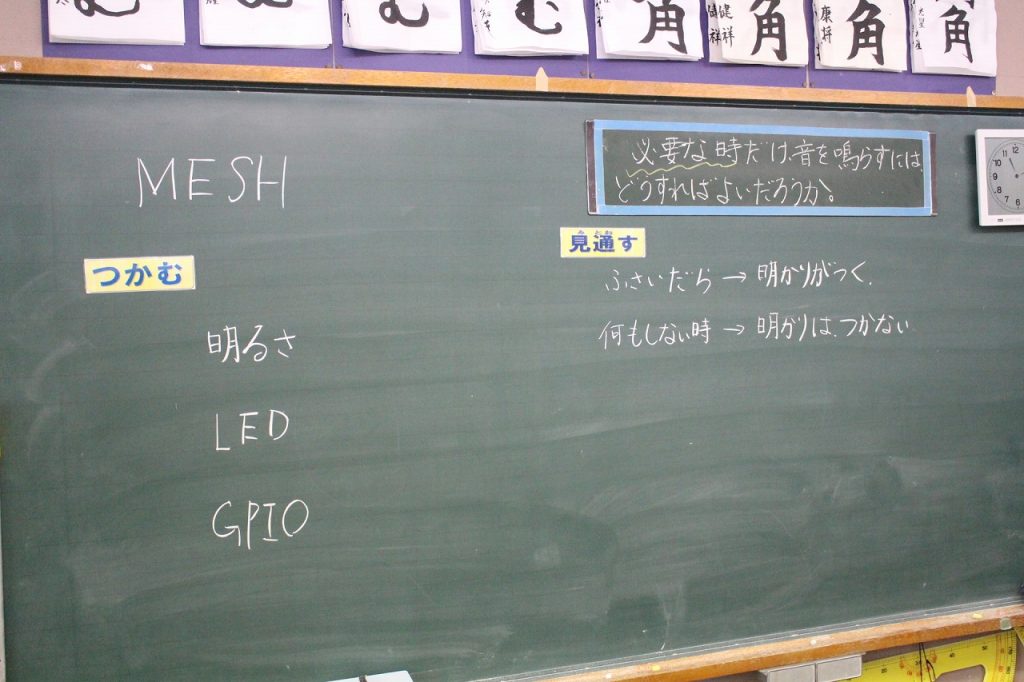 む
む
む
む
角
角
角
角
健祥
康将
MESH
つかむ
明るさ
LED
GPIO
必要な時だけ、音を鳴らすには、
どうすればよいだろうか。
見通す
ふさいだら → 明かりがつく.
何もしない時 → 明かりは、つかない